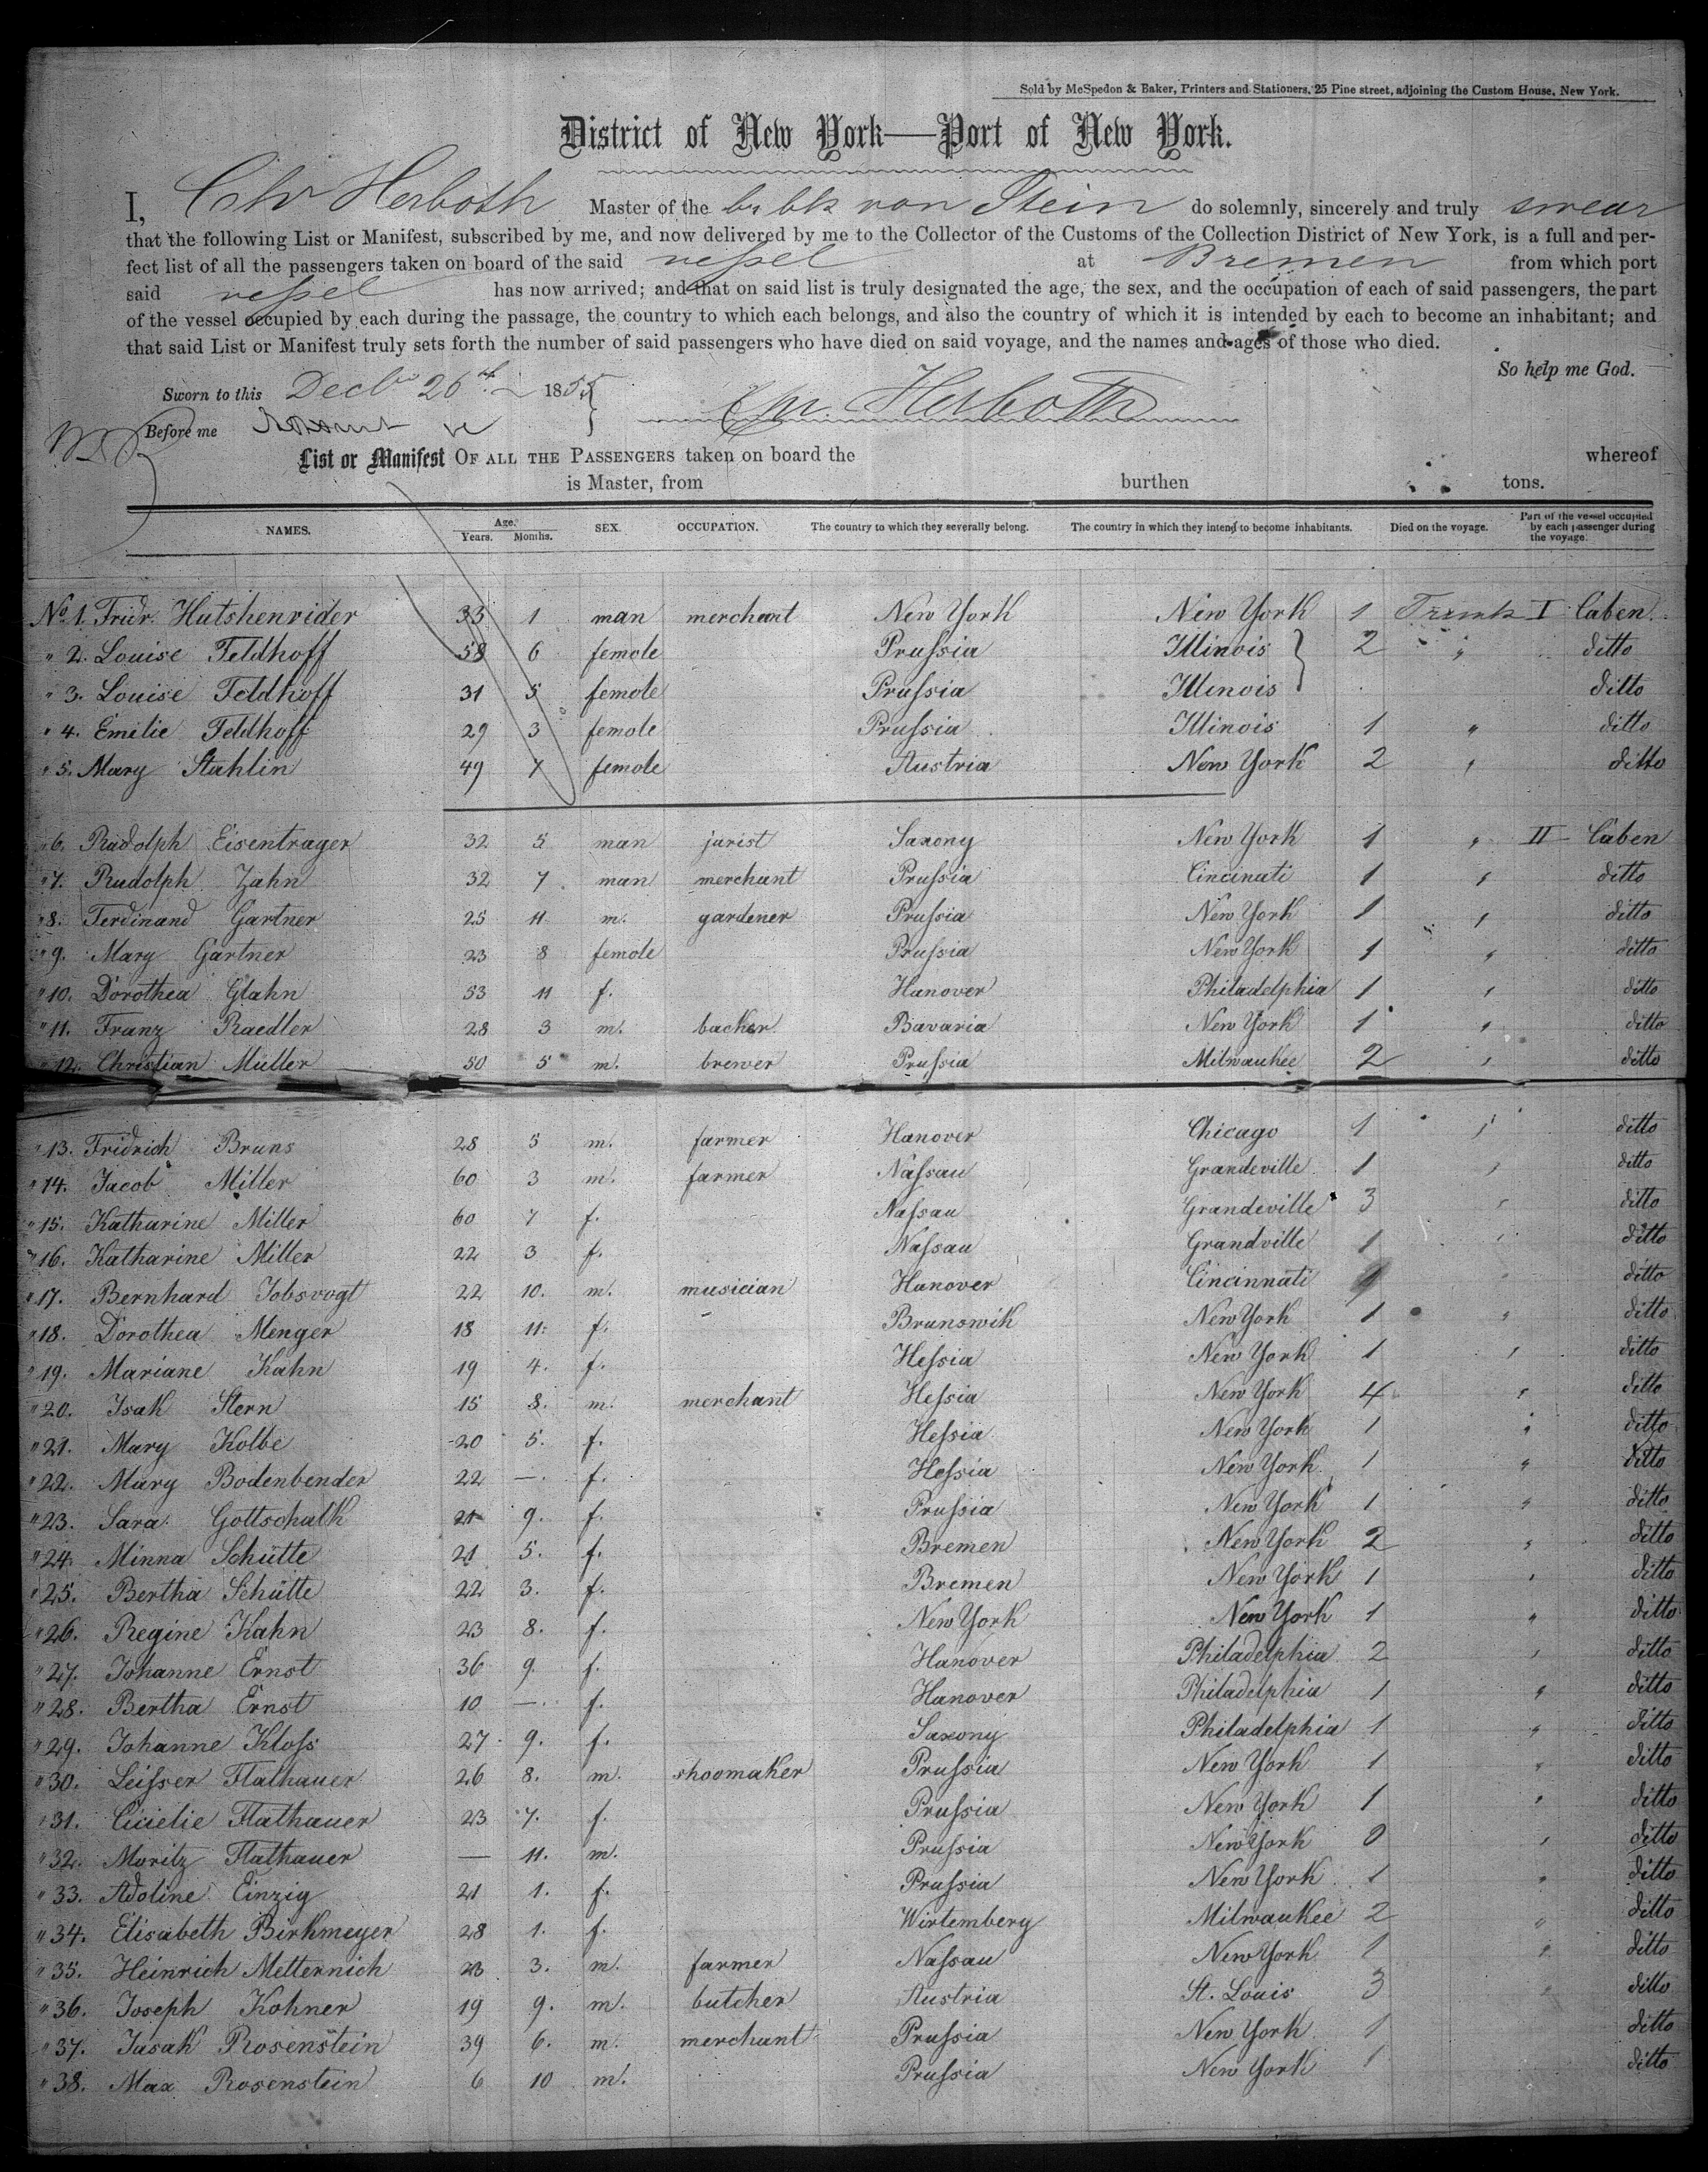 Sold by McSpedon & Baker, Printers and Stationers, 25 Pine street, adjoining the Custom House, New York.
District of New York—Port of New York.
I, Chr Herboth Master of the br bk von Stein do solemnly, sincerely and truly swear
that the following List or Manifest, subscribed by me, and now delivered by me to the Collector of the Customs of the Collection District of New York, is a full and per-
fect list of all the passengers taken on board of the said vessel at Bremen from which port
said vessel has now arrived; and that on said list is truly designated the age, the sex, and the occupation of each of said passengers, the part
of the vessel occupied by each during the passage, the country to which each belongs, and also the country of which it is intended by each to become an inhabitant; and
that said List or Manifest truly sets forth the number of said passengers who have died on said voyage, and the names and ages of those who died.
So help me God.
Sworn to this Decbr 26th 1855
Chr. Herboth
Before me
List or Manifest OF ALL THE PASSENGERS taken on board the whereof
is Master, from burthen tons.
NAMES. Age. Years. Months. SEX. OCCUPATION. The country to which they severally belong. The country in which they intend to become inhabitants. Died on the voyage. Part of the vessel occupied by each passenger during the voyage.
No 1. Fridr. Hutshenrider 33 1 man merchant New York New York 1 Trunk I Caben
" 2. Louise Feldhoff 58 6 female Prussia Illinois 2 " ditto
" 3. Louise Feldhoff 31 5 female Prussia Illinois ditto
" 4. Emilie Feldhoff 29 3 female Prussia Illinois 1 " ditto
" 5. Mary Stahlin 49 7 female Austria New York 2 " ditto
" 6. Rudolph Eisentrager 32 5 man jurist Saxony New York 1 " II Caben
" 7. Rudolph Zahn 32 7 man merchant Prussia Cincinati 1 " ditto
" 8. Ferdinand Gartner 25 11 m. gardener Prussia New York 1 " ditto
" 9. Mary Gartner 23 8 female Prussia New York 1 " ditto
" 10. Dorothea Glahn 53 11 f. Hanover Philadelphia 1 " ditto
" 11. Franz Raedler 28 3 m. backer Bavaria New York 1 " ditto
" 12. Christian Müller 50 5 m. brewer Prussia Milwaukee 2 " ditto
" 13. Fridrich Bruns 28 5 m. farmer Hanover Chicago 1 " ditto
" 14. Jacob Miller 60 3 m. farmer Nassau Grandeville 1 " ditto
" 15. Katharine Miller 60 7 f. Nassau Grandeville 3 " ditto
" 16. Katharine Miller 22 3 f. Nassau Grandville 1 " ditto
" 17. Bernhard Jobsvogt 22 10. m. musician Hanover Cincinnati " ditto
" 18. Dorothea Menger 18 11. f. Brunswik New York 1 " ditto
" 19. Mariane Kahn 19 4. f. Hessia New York 1 " ditto
" 20. Isak Stern 15 8. m. merchant Hessia New York 4 " ditto
" 21. Mary Kolbe 20 5. f. Hessia New York 1 " ditto
" 22. Mary Bodenbender 22 —. f. Hessia New York 1 " ditto
" 23. Sara Gottschalk 21 9. f. Prussia New York 1 " ditto
" 24. Minna Schütte 21 5. f. Bremen New York 2 " ditto
" 25. Bertha Schütte 22 3. f. Bremen New York 1 " ditto
" 26. Regine Kahn 23 8. f. New York New York 1 " ditto
" 27. Johanne Ernst 36 9. f. Hanover Philadelphia 2 " ditto
" 28. Bertha Ernst 10 —. f. Hanover Philadelphia 1 " ditto
" 29. Johanne Kloss 27 9. f. Saxony Philadelphia 1 " ditto
" 30. Leisser Flathauer 26 8. m. shoomaker Prussia New York 1 " ditto
" 31. Cicielie Flathauer 23 7. f. Prussia New York 1 " ditto
" 32. Moritz Flathauer — 11. m. Prussia New York 0 " ditto
" 33. Adoline Einzig 21 1. f. Prussia New York 1 " ditto
" 34. Elisabeth Birkmeyer 28 1. f. Wirtemberg Milwaukee 2 " ditto
" 35. Heinrich Metternich 23 3. m. farmer Nassau New York 1 " ditto
" 36. Joseph Kohner 19 9. m. butcher Austria St. Louis 3 " ditto
" 37. Jasak Rosenstein 39 6. m. merchant Prussia New York 1 ditto
" 38. Max Rosenstein 6 10 m. Prussia New York 1 ditto